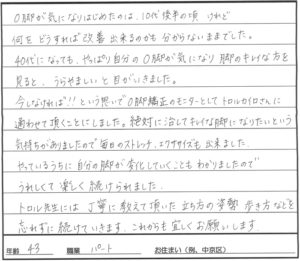 O脚が気になりはじめたのは、10代後半の頃 けれど
何をどうすれば改善出来るのかも分からないままでした。
40代になっても、やっぱり自分のO脚が気になり 脚のキレイな方を
見ると、うらやましいと目がいきました。
今しなければ!!という思いでO脚矯正のモニターとしてトロルカイロさんに
通わせて頂くことにしました。絶対に治してキレイな脚になりたいという
気持ちがありましたので毎日のストレッチ、エクササイズも出来ました。
やっているうちに自分の脚が変化していくこともわかりましたので
うれしくて楽しく続けられました。
トロル先生には丁寧に教えて頂いた立ち方の姿勢 歩き方などを
忘れずに続けていきます。これからも宜しくお願いします。
年齢 43 職業 パート お住まい(例、中京区)